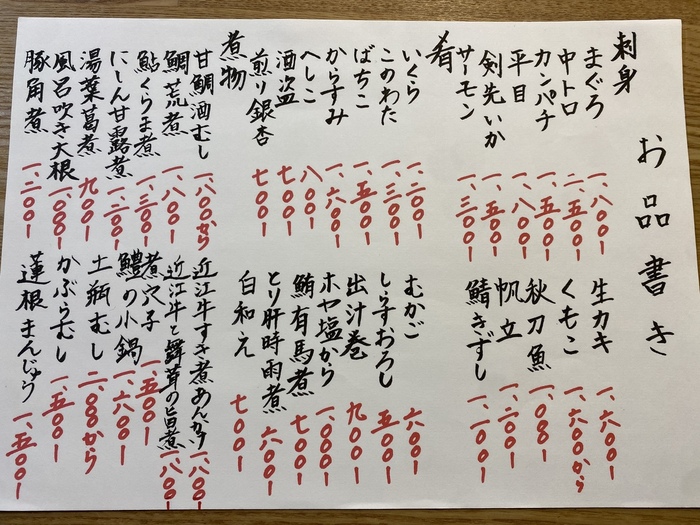 お品書き
刺身
まぐろ 一、八〇〇ー
中トロ 二、五〇〇ー
カンパチ 一、五〇〇ー
平目 一、八〇〇ー
剣先いか 一、五〇〇ー
サーモン 一、三〇〇ー
生カキ 一、六〇〇ー
くもこ 一、六〇〇から
秋刀魚
帆立 一、二〇〇ー
鯖きずし 一、一〇〇ー
肴
いくら 一、二〇〇ー
このわた 一、三〇〇ー
ばちこ 一、五〇〇ー
からすみ 一、六〇〇ー
へしこ 八〇〇ー
酒盗 七〇〇ー
煎り銀杏 七〇〇ー
むかご 六〇〇ー
しらすおろし 五〇〇ー
出汁巻 九〇〇ー
ホヤ塩から 一、〇〇〇ー
鮪有馬煮 七〇〇ー
とり肝時雨煮 六〇〇ー
白和え 七〇〇ー
煮物
甘鯛酒むし 一、八〇〇から
鯛荒煮 一、八〇〇ー
鮎くらま煮 一、三〇〇ー
にしん甘露煮 一、二〇〇ー
湯葉葛煮 九〇〇ー
風呂吹き大根 一、〇〇〇ー
豚角煮 一、二〇〇ー
近江牛すき煮あんかけ 一、八〇〇ー
近江牛と舞茸の旨煮 一、八〇〇ー
煮穴子 一、五〇〇ー
鱧の小鍋 一、六〇〇ー
土瓶むし 二、〇〇〇から
かぶらむし 一、五〇〇ー
蓮根まんじゅう 一、五〇〇ー